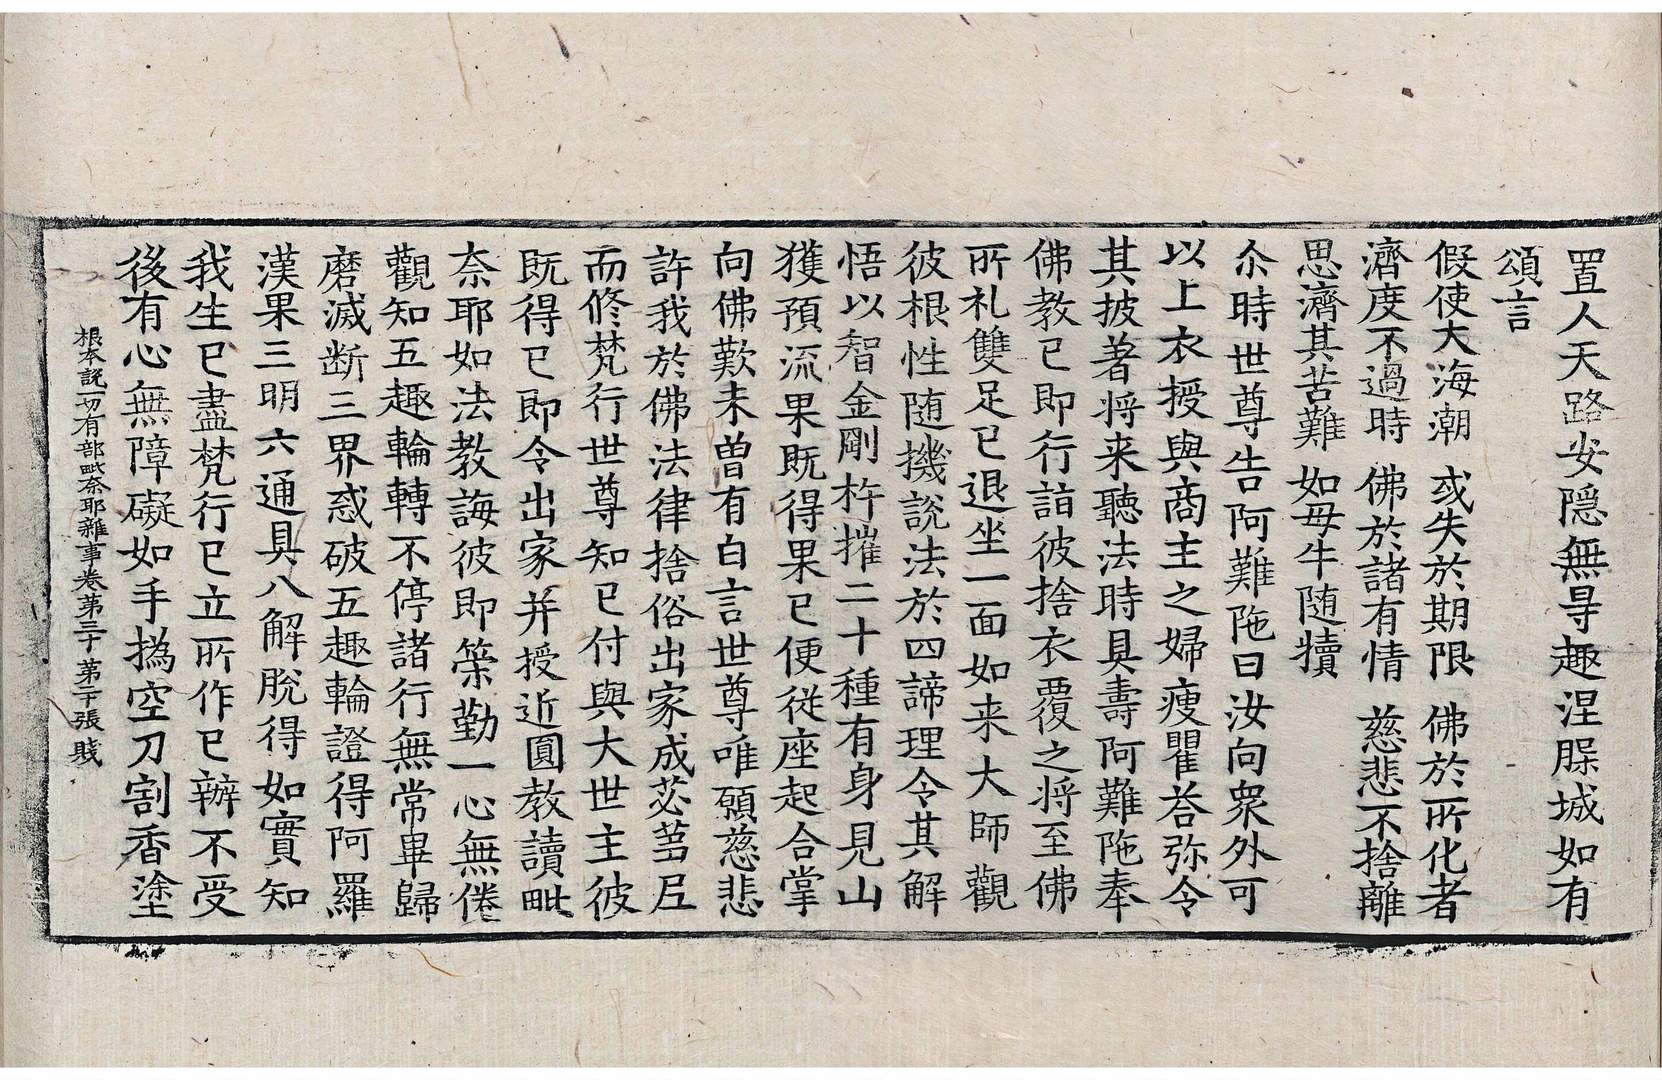 置人天路安隱無㝵趣涅槃城如有
頌言
假使大海潮 或失於期限 佛於所化者
濟度不過時 佛於諸有情 慈悲不捨離
思濟其苦難 如母牛随犢
尒時世尊告阿難陁曰汝向衆外可
以上衣授與商主之婦瘦瞿荅弥令
其披著将来聽法時具壽阿難陁奉
佛教已即行詣彼捨衣覆之将至佛
所礼雙足已退坐一面如来大師觀
彼根性随機說法於四諦理令其解
悟以智金剛杵摧二十種有身見山
獲預流果既得果已便從座起合掌
向佛歎未曽有白言世尊唯願慈悲
許我於佛法律捨俗出家成苾芻尼
而修梵行世尊知已付與大世主彼
既得已即令出家并授近圓教讀毗
奈耶如法教誨彼即策勤一心無倦
觀知五趣輪轉不停諸行無常畢歸
磨滅断三界惑破五趣輪證得阿羅
漢果三明六通具八解脫得如實知
我生已盡梵行已立所作已辦不受
後有心無障礙如手撝空刀割香塗
根本說一切有部毗奈耶雜事卷第三十 第二十張 賤